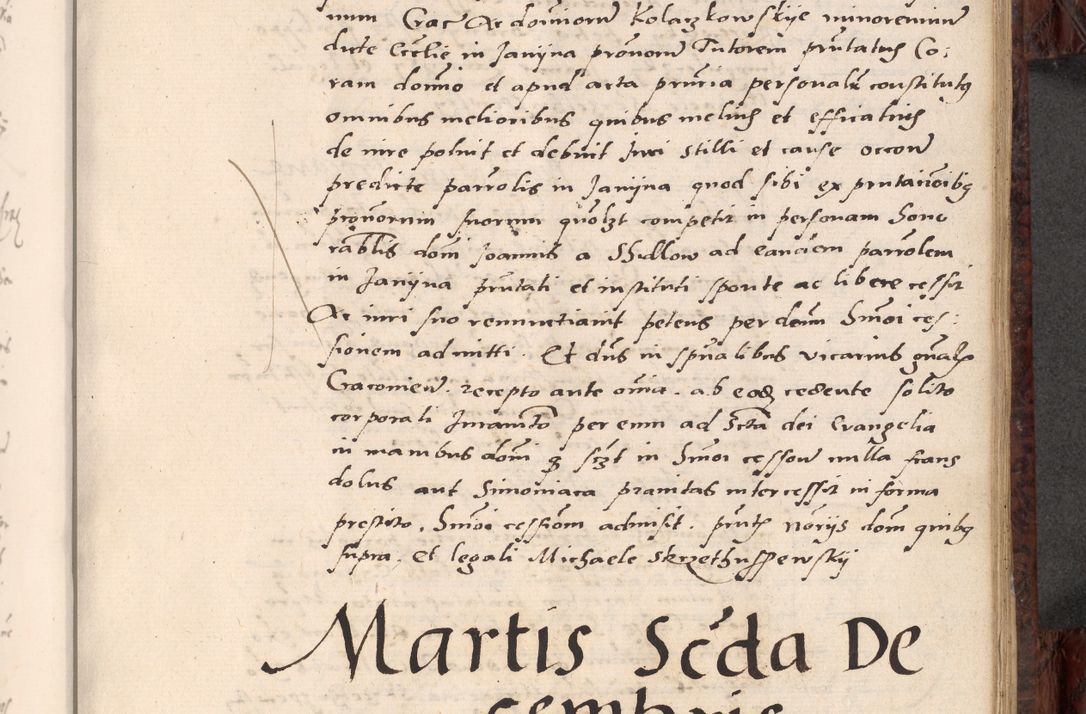 num Crac Ac dominorum Kolaczkowskije minorennium
dicte Ecclie in Janijna pronorum Tutorem prutatus Co:
ram domino et apud acta prncia personalr constitutus
omnibus melioribus quibus melius et efficatius
de iure potuit et debuit Juri Stilli et cause occone
predicte parrolis in Janijna quod sibi ex prntaiōibus
pronorum suorum quolzt competit in personam hono
rablis domi Joannis a Shidlow ad eandem parrolem
in Janijna prutati et instituti sponte ac libere cessit
Ac iuri suo renunctiauit petens per domi hmoi ces:
sionem admitti. Et dns in spualibus vicarius gnalis
Cracouien. recepto ante omia. ab eodem cedente solito
corporali Juramto per eum ad Scta dei Evangelia
in manibus domi q sizt in hmoi cessione nulla fraus
dolus aut Simoniaca prauitas intercessit in forma
prestito. hmoi cessiom admisit. prntz noriis dom quibus
supra. et legali Michaele Skrzethussewskij
Martis Scda De
cembris